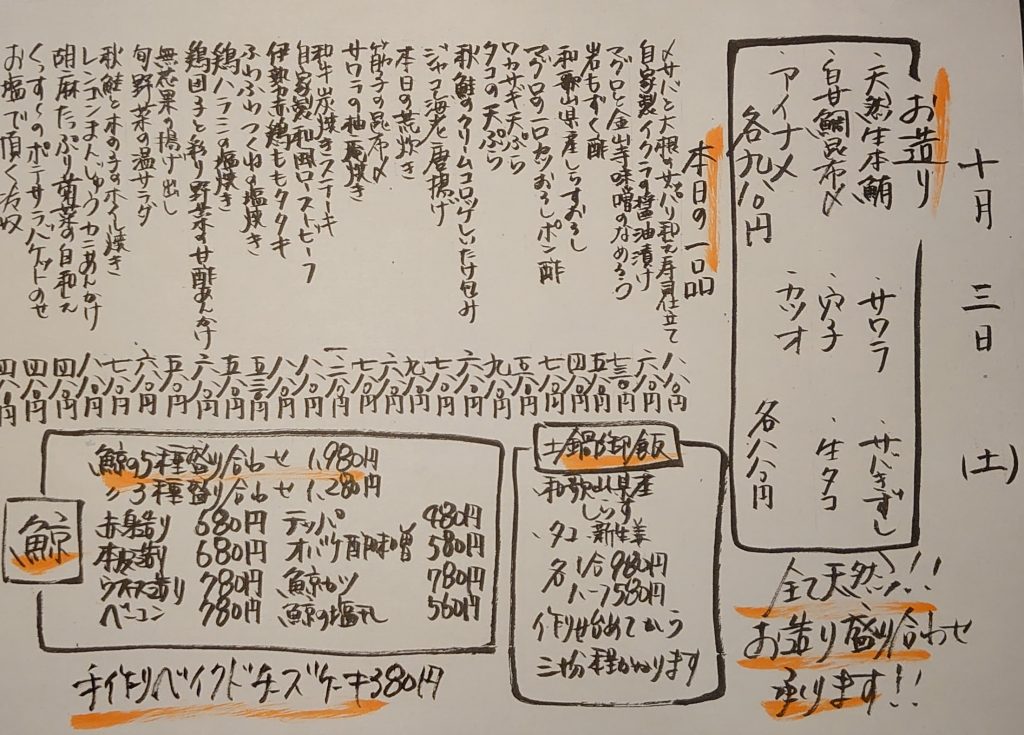 十月 三日 (土)
お造り
・天然生本鮪 ・サワラ ・サバきずし
・白甘鯛昆布〆 ・穴子 ・生タコ
・アイナメ ・カツオ
各九八〇円 各八八〇円
全て天然!!
お造り盛り合わせ
承ります!!
本日の一品
〆サバと大根のサッパリ和え寿司仕立て 八八〇円
自家製イクラの醤油漬け 六八〇円
マグロと金山寺味噌のなめろう 七三〇円
岩もずく酢 五八〇円
和歌山県産しらすおろし 四八〇円
マグロの一口カツおろしポン酢 七八〇円
ワカサギ天ぷら 五八〇円
タコの天ぷら 九八〇円
秋鮭のクリームコロッケしいたけ包み 六八〇円
ジャコ海老唐揚げ 七八〇円
本日の荒炊き 九八〇円
サワラの柚庵焼き 七八〇円
筋子の昆布〆
和牛炭焼きステーキ
自家製和風ローストビーフ 八八〇円
伊勢赤鶏ももタタキ 八八〇円
ふわふわつくねの塩焼き 五三〇円
鶏ハラミの塩焼き 五八〇円
鶏団子と彩り野菜の甘酢あんかけ 六八〇円
無花果の揚げ出し 五八〇円
旬野菜の温サラダ 六八〇円
秋鮭と木の子のホイル焼き 七八〇円
レンコンまんじゅうカニあんかけ 八八〇円
胡麻たっぷり菊菜の白和え 四八〇円
くんすーのポテサラバゲットのせ 四八〇円
お塩で頂く冷奴 四八〇円
土鍋御飯
和歌山県産
しらす
タコ 新生姜
各1合 980円
ハーフ580円
作り始めてから
三十分程かかります
鯨
鯨の5種盛り合わせ 1,980円
〃3種盛り合わせ 1,280円
赤身造り 680円 テッパ 480円
本皮造り 680円 オバケ酢味噌 580円
ウネス造り 780円 鯨カツ 780円
ベーコン 780円 鯨の塩干し 560円
手作りベイクドチーズケーキ380円